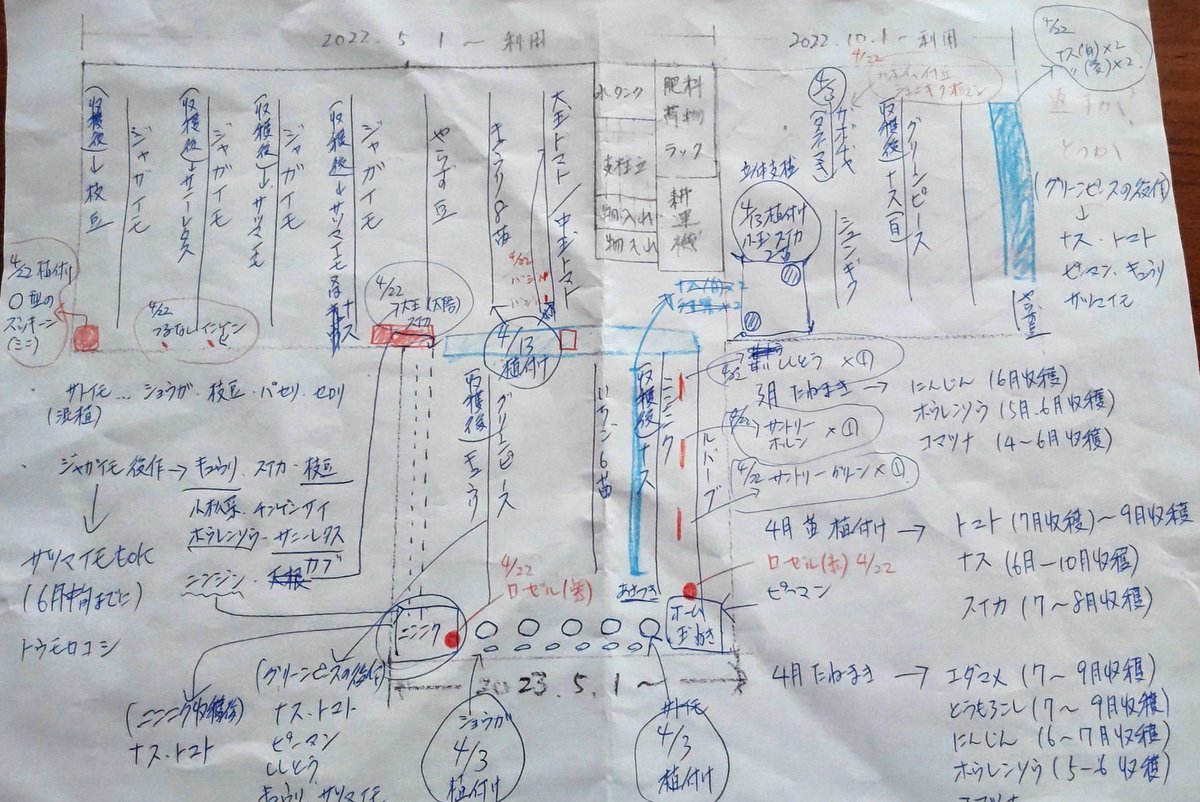 2022.5.1～利用
2022.10.1～利用
4/22
ナス(白)×2
〃(麦)×2
(収穫後)→枝豆
ジャガイモ
(収穫後)→サニーレタス
ジャガイモ
(収穫後)→サツマイモ
ジャガイモ
(収穫後)→サツマイモ
ナス
ジャガイモ
やっこ豆
きゅうり8苗
大玉トマト/中玉トマト
水タンク
支柱立
物入れ
物入れ
肥料
荷物
ラック
耕運機
4/3
カボチャ
4/22
シュンギク
(収穫後)ナス(白)
グリーンピース
立体支柱
4/13植付け
小玉スイカ
2苗
(グリーンピースの後作)
↓
ナス・トマト
ピーマン・キュウリ
サツマイモ
4/22植付け
〇型の
ズッキーニ
(ミニ)
4/22
つるなしインゲン
4/22
大玉(太陽)
スイカ
4/22
4/13
植付け
・サトイモ…ショウガ・枝豆・パセリ・セロリ
(混植)
(収穫後)キュウリ
グリーンピース
いちご6苗
(収穫後)ナス
ニンニク
ルバーブ
4/22
ししとう×①
4/22
サントリー
ホルン×①
4/22サントリーグリーン×①
3月たねまき→にんじん(6月収穫)
ホウレンソウ(5月-6月収穫)
コマツナ(4～6月収穫)
・ジャガイモ後作→キュウリ・スイカ・枝豆
小松菜・チンゲンサイ
ホウレンソウ-サニーレタス
ニンジン・大根 カブ
サツマイモもOK
(6月中旬までに)
トウモロコシ
4月苗植付け→トマト(7月収穫)～9月収穫
ナス(6月-10月収穫)
スイカ(7～8月収穫)
ピーマン
4/22
ロゼル(赤)4/22
あさつき
ニンニク
ホーム
玉ねぎ
2023.5.1～
(グリーンピースの後作)
ナス・トマト
ピーマン
ししとう
キュウリ サツマイモ
(ニンニク収穫後)
ナス・トマト
ショウガ
4/3
植付け
サトイモ
4/3
植付け
4月たねまき→エダマメ(7～9月収穫)
とうもろこし(7～9月収穫)
にんじん(6～7月収穫)
ホウレンソウ(5-6収穫)
コマツナ